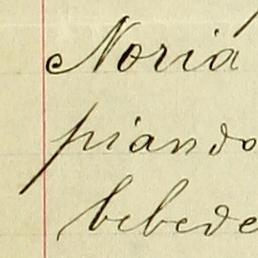 Noria
piando
bebede